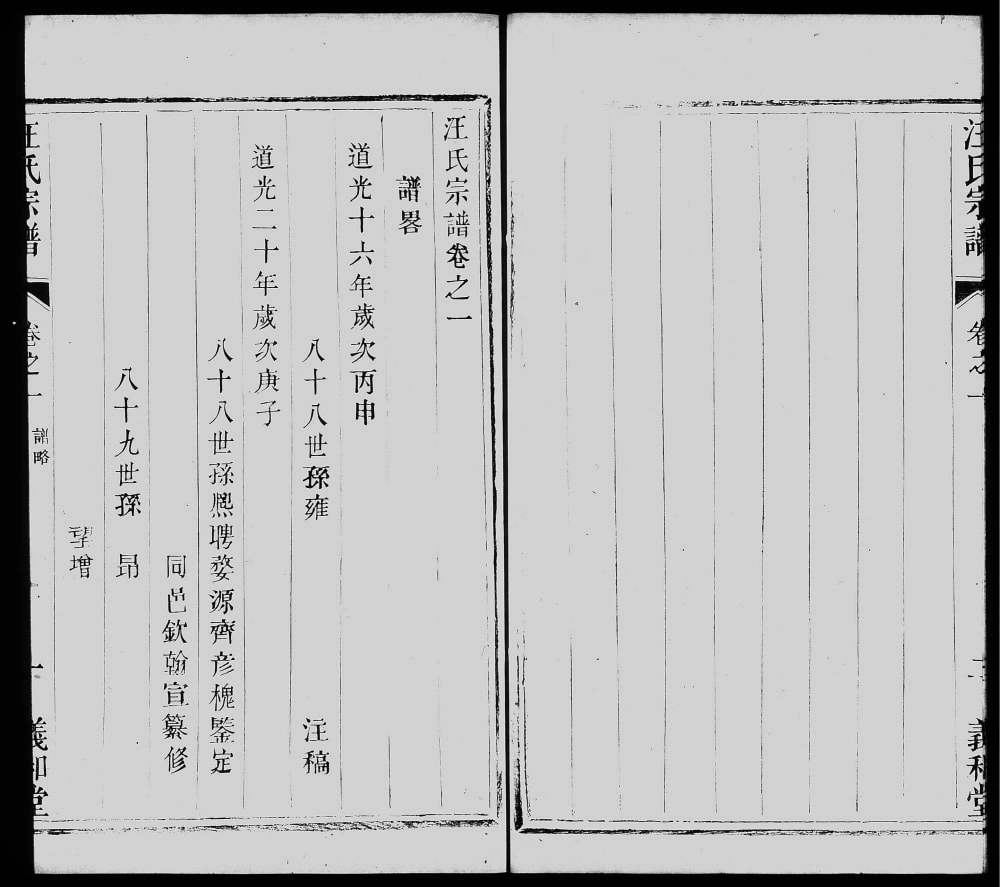 汪氏宗譜
卷之一
二
義和堂
汪氏宗譜卷之一
譜畧
道光十六年歲次丙申
八十八世孫雍 注稿
道光二十年歲次庚子
八十八世孫熈聘婺源齊彦槐鑒定
同邑欽翰宣纂修
八十九世孫 昻
望增
汪氏宗譜
卷之一
譜略
一
義和堂